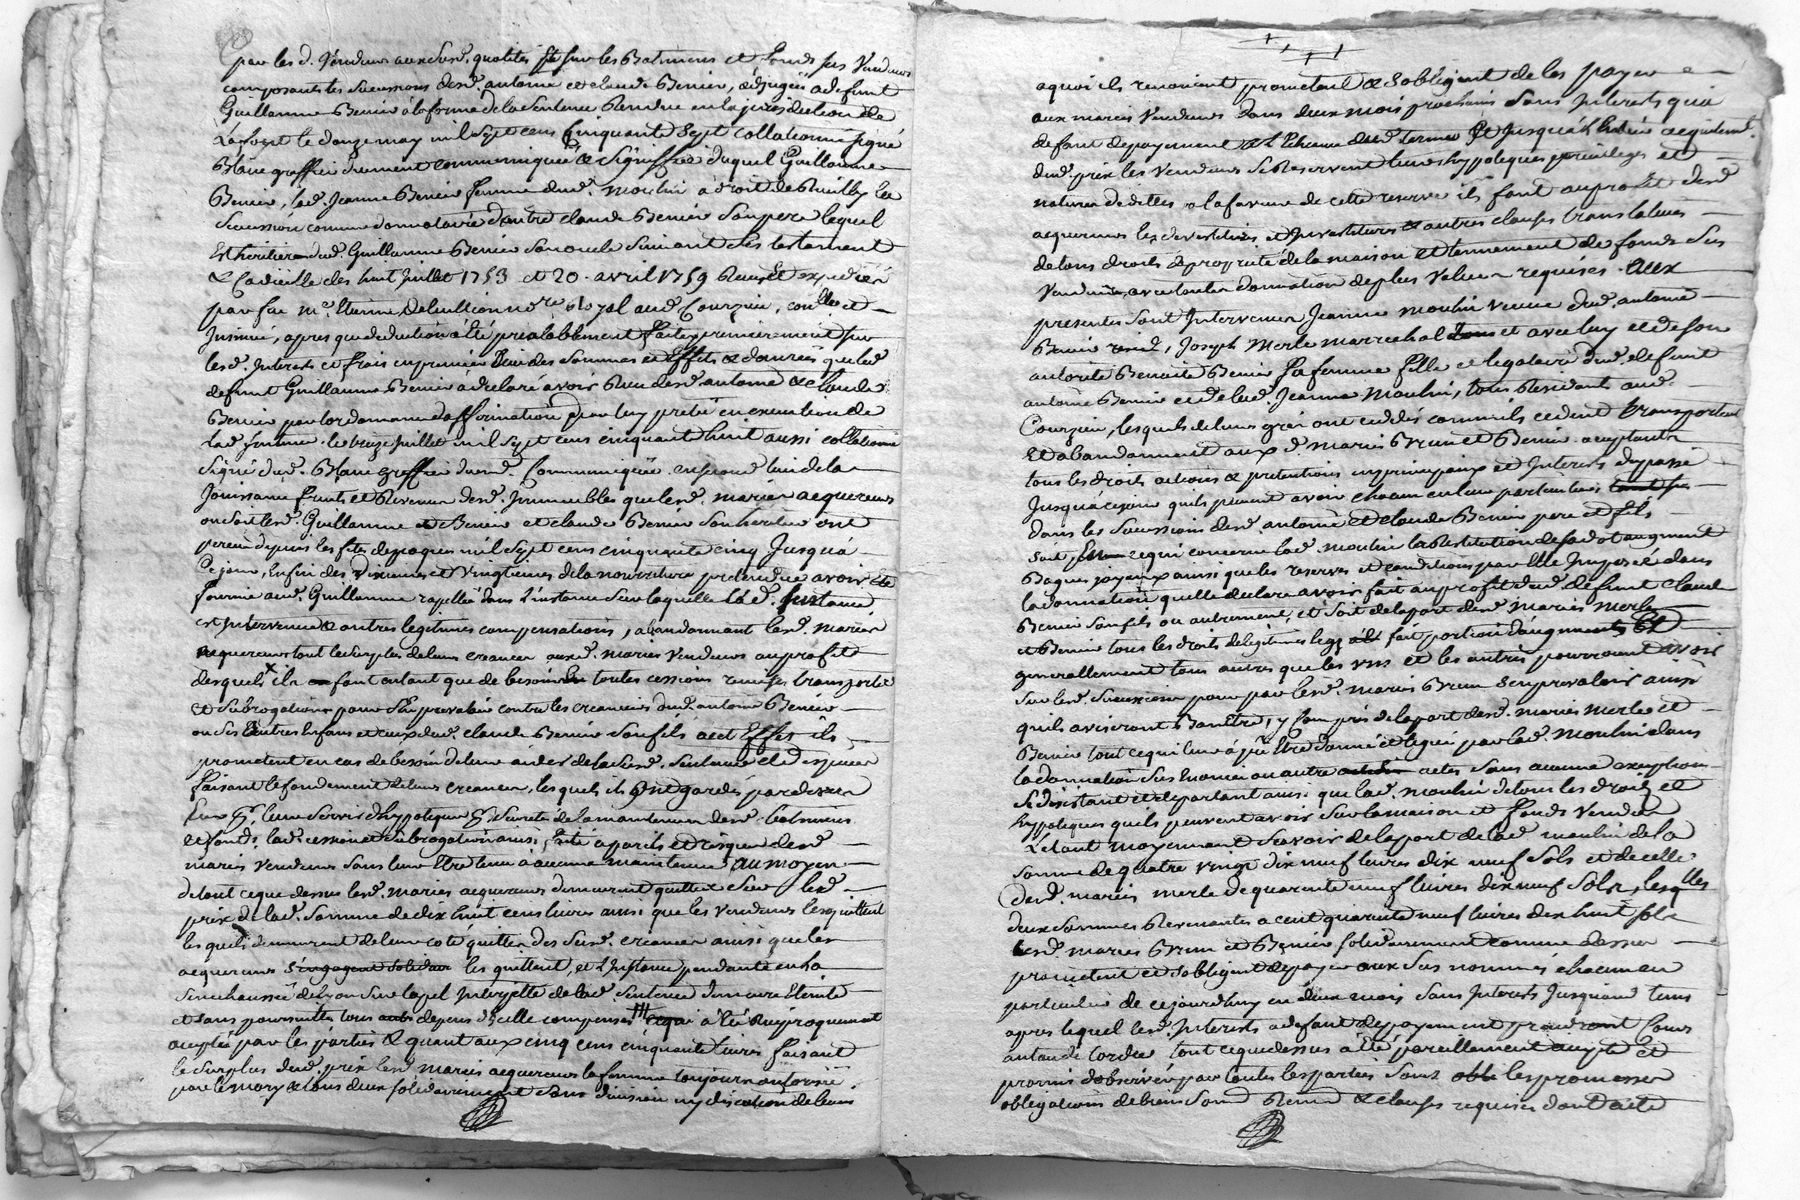 par les d. Vendeurs aux susd. qualités sur les Batiments et fonds sus Vendeus
composants les successions desd. antoine et claude Benier, adjugée a defunt
Guillaume Benier a la forme de la sentence Rendue en la jurisdiction de
le douze may mil sept cens Cinquante Sept collationné signé
Blanc greffier duement communiquée & signiffiée duquel Guillaume
Benier, lad. Jeanne Benier femme dud. moulin a droit
succession comme donnataire dud. claude Benier son pere lequel
est heritier dud. Guillaume Benier son oncle suivant les testament
& Codicille des huit Juillet 1753 et 20 avril 1759 Reçus et expediés
par feu me. Etienne Notre. Royal aud. Courzieu, conllé. et
Insinué, apres que deduction a été prealablement faite premierement sur
lesd. Interets et frais en premier lieu des sommes et Effets & danrées que led.
defunt Guillaume Benier a declaré avoir Reçu desd. antoine & claude
Benier par lordonnance d'affirmation par luy pretée en execution de
lad. sentence le treize Juillet mil sept cens cinquante huit aussi collationné
Signé dud. Blanc greffier Communiquée en second lieu de la
Jouissance fruits et Revenus desd. Immeubles que lesd. mariés acquereurs
ou soit led. Guillaume Benier et claude Benier son heritier ont
perçu depuis les fetes de pacques mil sept cens cinquante cinq Jusqu'a
Ce jour, Enfin des dixiemes et vingtiemes de la nourriture pretendue avoir été
fournie aud. Guillaume rapellée dans l'instance sur laquelle lad. sentence
est Intervenue & autres legitimes compensations, abandonnant lesd. mariés
acquereurs tout le surplus de leurs creances auxd. mariés Vendeurs au profit
desquels ils font entant que de besoin toutes cessions remises transports
et subrogations pour s'en prevaloir contre les creanciers dud. antoine Benier
ou ses autres Enfans et ceux dud. claude Benier son fils a cet Effet ils
promettent en cas de besoin de leur aider de la susd. sentence et des pieces
faisant le fondement de leurs creances, lesquels ils ont gardés par devers
Eux pr. leur servir d'hypoteque & sureté de la maintenue desd. batiments
et fonds, lad. cession et subrogation ainsi faite a perils et risques desd.
mariés Vendeurs sans leur Etre tenu a aucune maintenue, au moyen
de tout ce que dessus lesd. mariés acquereurs demeurent quittes sur led.
prix de lad. somme de dix huit cens livres ainsi que les Vendeurs les quittent
lesquels demeurent de leur coté quittes des susd. creances ainsi que les
acquereurs les quittent, et l'instance pendante en la
Senechaussée de Lyon sur lapel Interjetté de lad. sentence demeure Eteinte
et sans poursuittes tous depens d'icelle compensés a été Reciproquement
accepté par les parties & quant aux cinq cens cinquante livres faisant
le surplus dud. prix lesd. mariés acquereurs la femme toujours autorisée
par le mary & tous deux solidairement sans division ny discution de biens
aquoi ils renoncent promettent & sobligent de les payer
aux mariés Vendeurs dans deux mois prochains sans Interets qu'a
defaut de payement a l'Echeance dud. terme Et Jusqu'a l'Entier acquittement
dud. prix les Vendeurs se Reservent leurs hypoteques privileges et
natures de dettes a la faveur de cette reserve ils font au profit desd.
acquereurs les devestitures et Investitures & autres clauses translatives
de tous droits de proprieté de la maison et tennement de fonds sus
Vendus, avec toutes donnation de plus Value requises. aux
presentes sont Intervenus Jeanne moulin veuve dud. antoine
Benier, Joseph Merle marrechal et avec luy et de son
autorité Benoite Benier sa femme fille et legataire dud. defunt
antoine Benier et de lad. Jeanne Moulin, tous Residants aud.
Courzieu, lesquels de leurs gré ont cedés comme ils cedent transportent
Et abandonnent aux d. mariés Brun et Benier acceptants
tous les droits actions & pretentions en principaux et Interets du passé
Jusqu'a ce jour quils peuvent avoir chacun en leur particulier
dans les successions desd. antoine et claude Benier pere et fils
soit, en ce qui concerne lad. moulin la Restitution de sa dot augment
Bagues joyaux ainsi que les reserves et conditions par elle Imposée dans
la donnation quelle declare avoir fait au profit dud. defunt claude
Benier son fils ou autrement, et soit de la part desd. Mariés Merle
et Benier tous les droits de legitimes legs fait portion d'augments Et
generallement tous autres que les uns et les autres pourroient avoir
sur lesd. successions pour par lesd. mariés Brun s'en prevaloir ainsi
quils aviseront Bon etre, y compris de la part desd. mariés Merle et
Benier tout ce qui leur a pû etre donné et legué par lad. Moulin dans
la donnation sus Enoncée ou autre actes sans aucune exception
se desistant et departant ainsi que lad. moulin de tous les droits et
hypoteques quils peuvent avoir sur la maison et fonds Vendus
Letout moyennant sçavoir de la part de lad. moulin de la
somme de quatre vingt dix neuf livres dix neuf sols et de celle
desd. mariés merle de quarante neuf livres dix neuf sols, lesqlles
deux sommes Revenantes a cent quarante neuf livres dix huit sols
lesd. mariés Brun et Benier solidairement comme dessus
promettent et sobligent de payer aux sus nommés chacun en
particulier de ce jourd'huy en deux mois sans Interets Jusquau tems
apres lequel lesd. Interets a defaut de payement prendront cours
tout ce que dessus a été pareillement accepté et
promis d'observer par toutes les parties sous les promesses
obligations de biens Soumd. Renond. & clauses requises dont acte